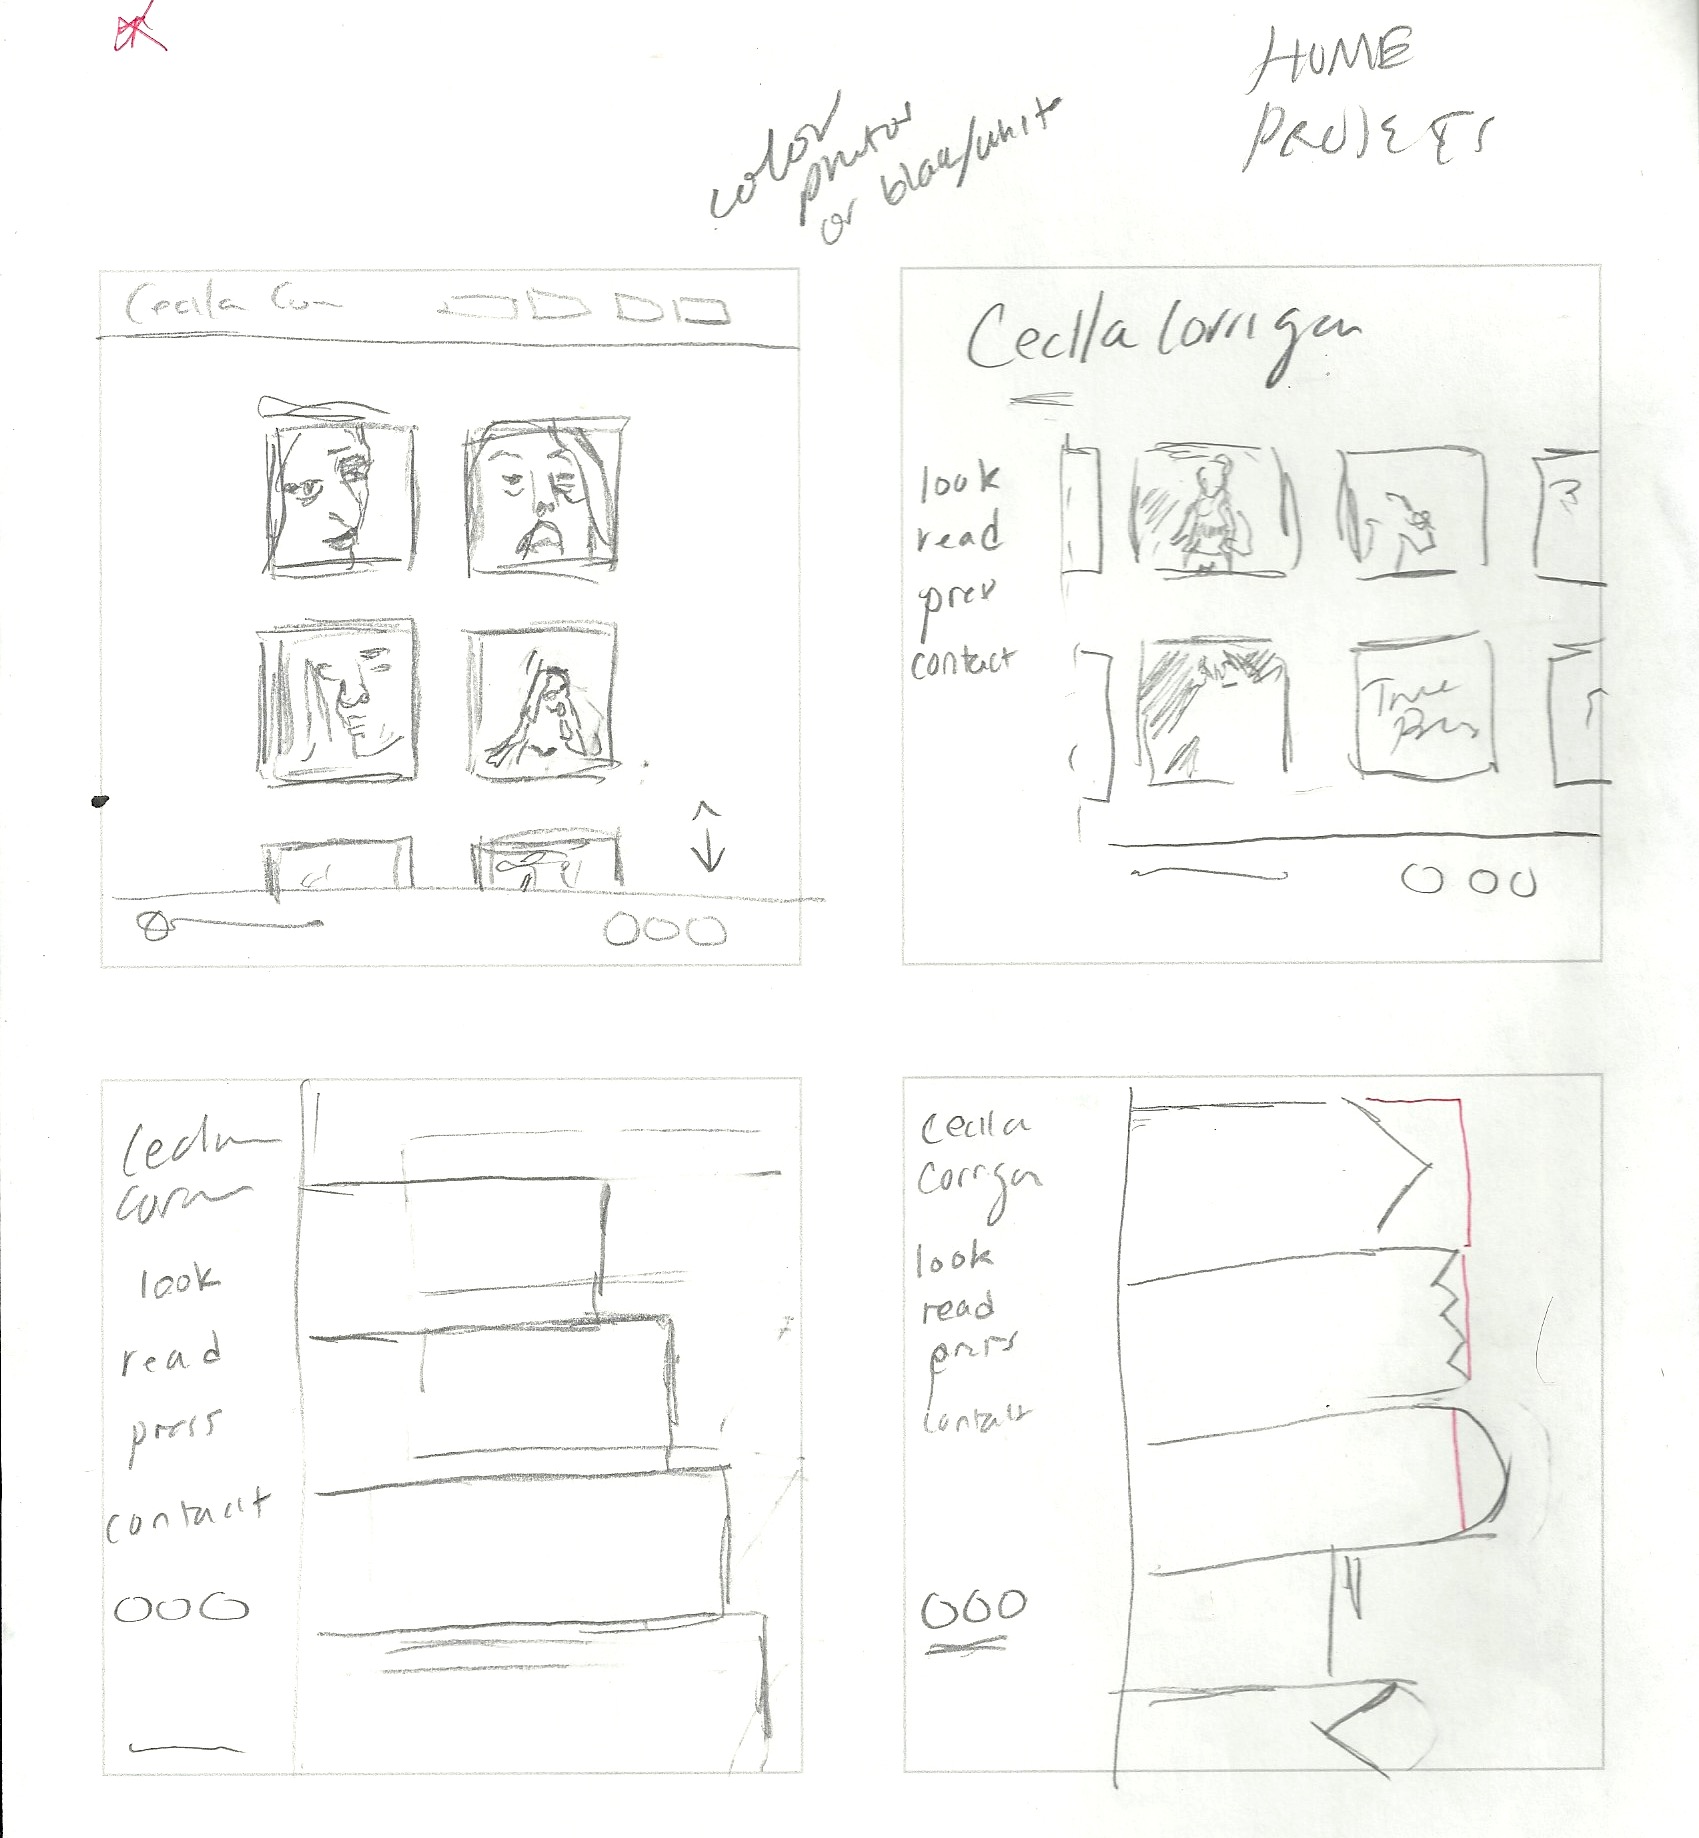 HOME
PROJECTS
color
photos
or black/white
Cecilia Corr
Cecilia Corrigan
look
read
press
contact
True
Cecilia
look
read
press
contact
Cecilia
Corrigan
look
read
press
contact